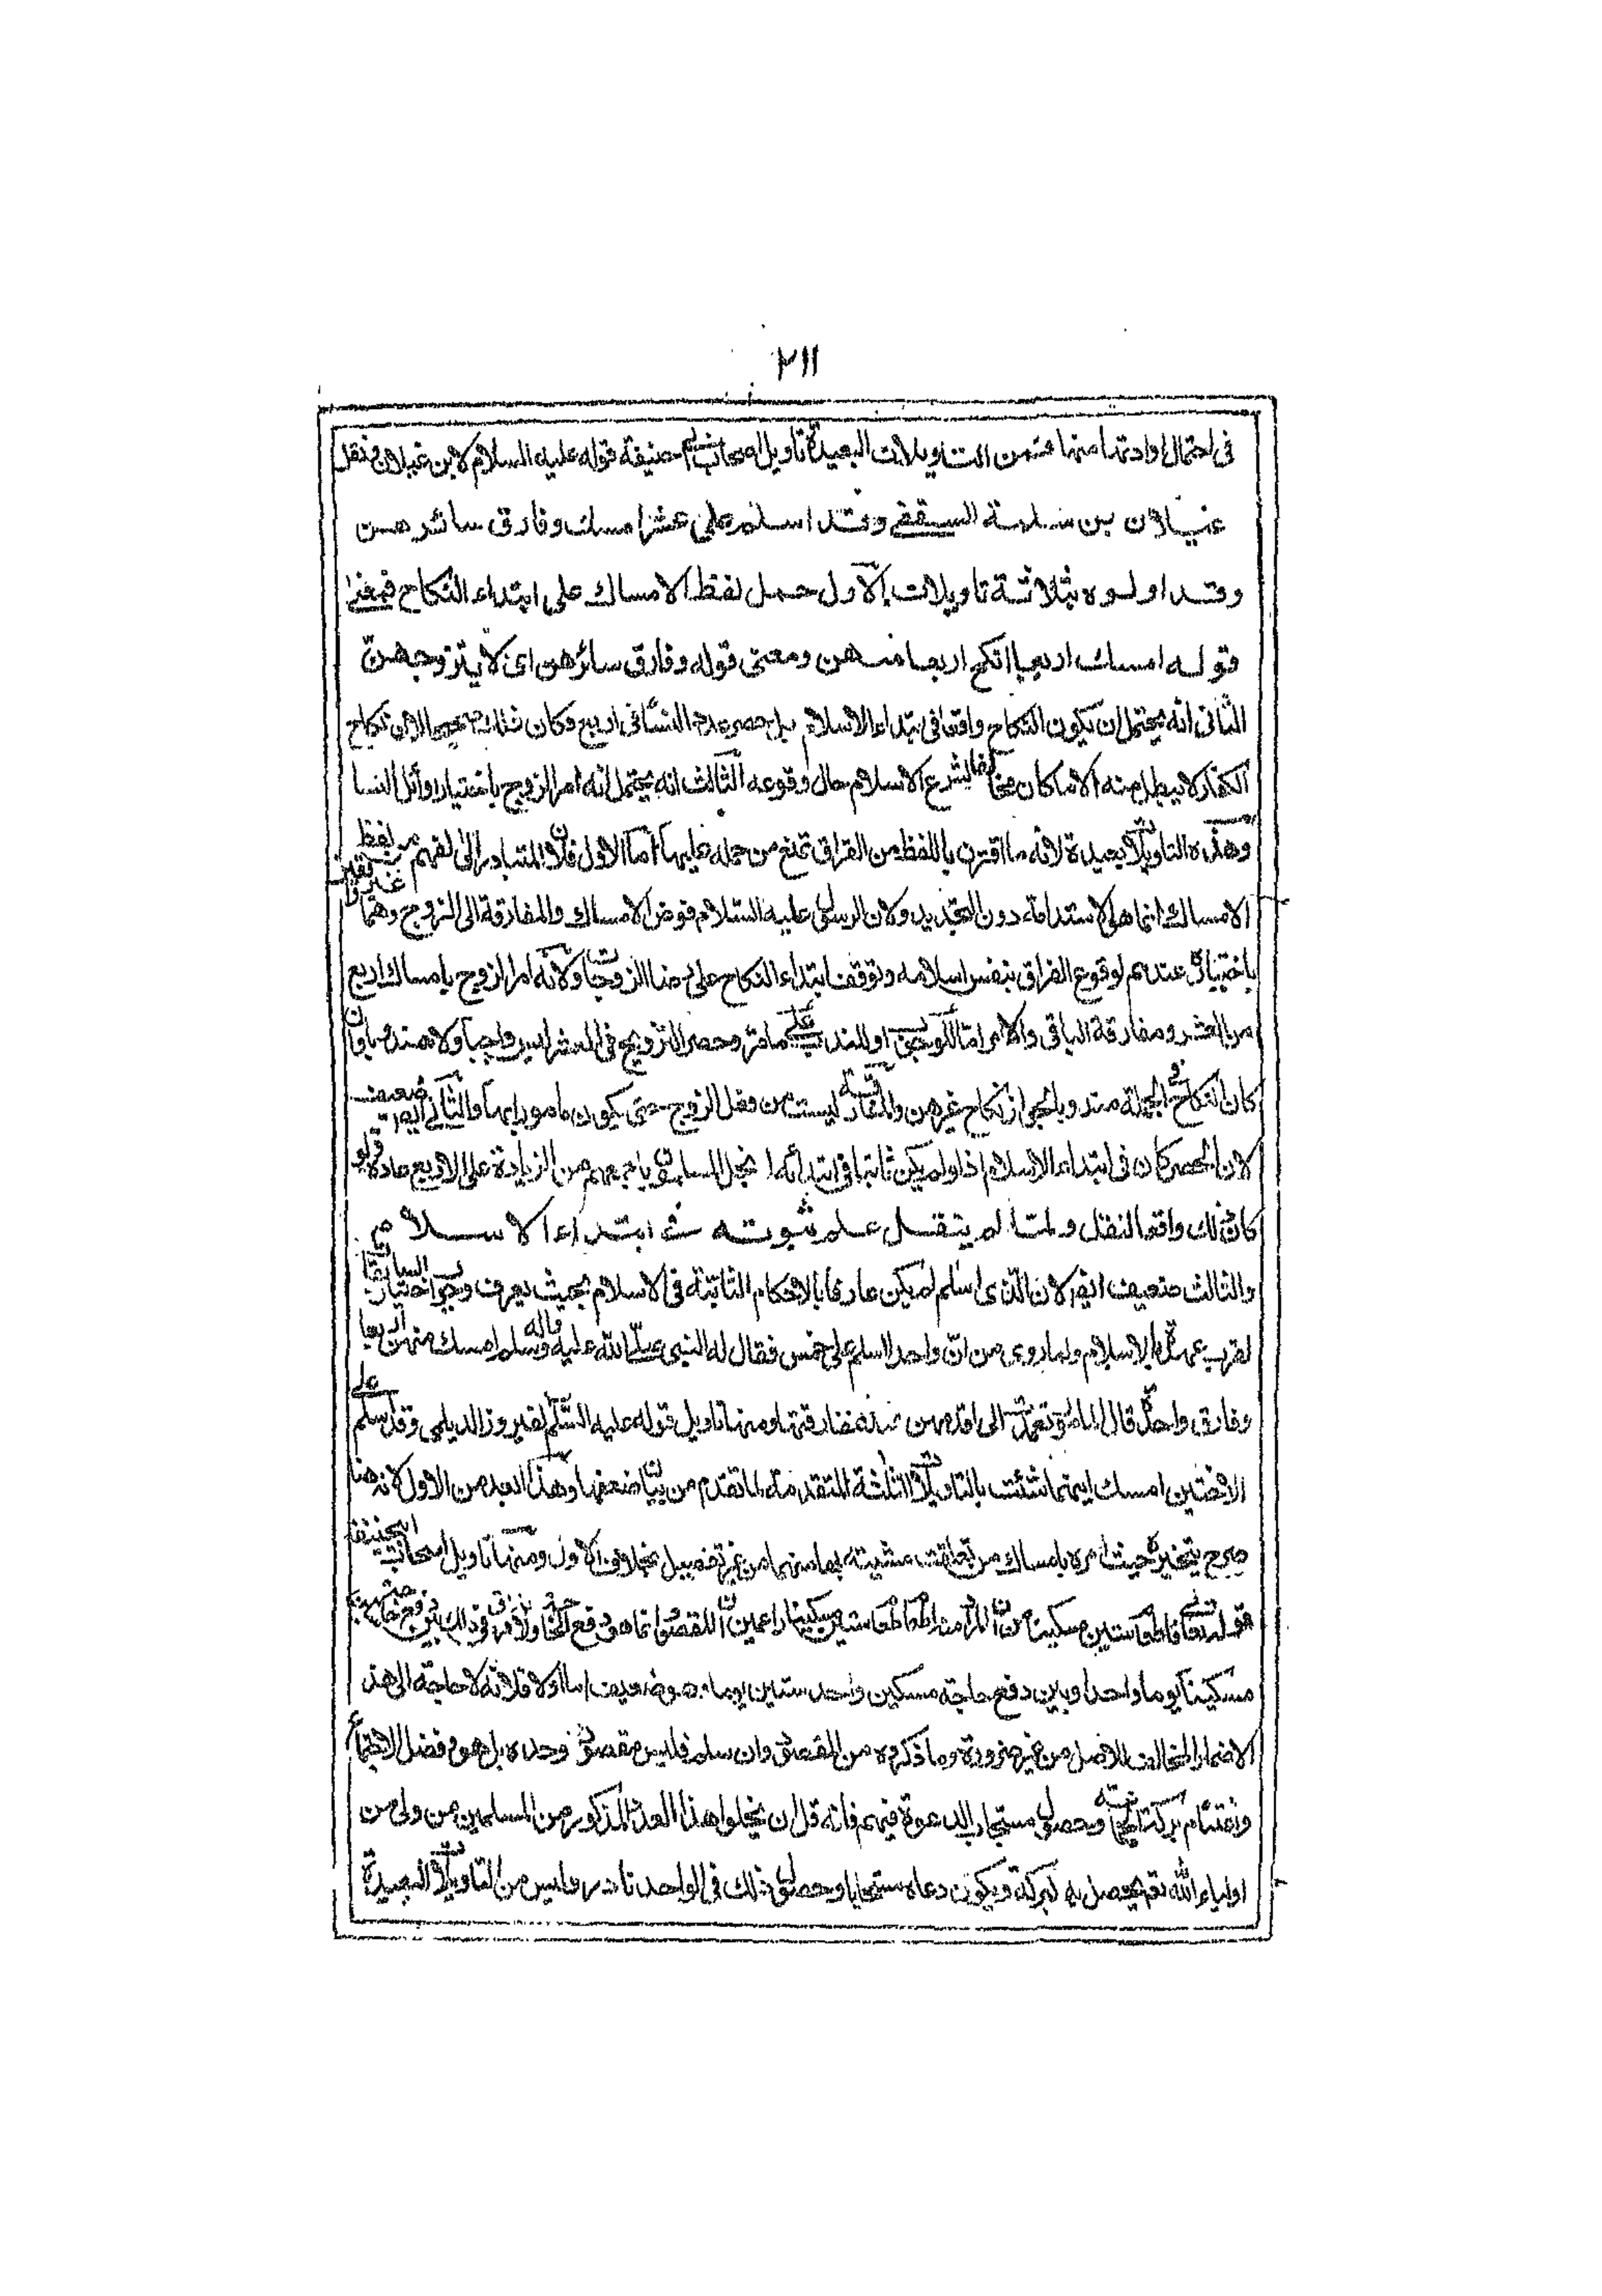 ٢١١
فى احتمال اوادتها منها فمن التاويلات البعيدة تاويل اصحاب ابى حنيفة قوله عليه السلام لابن غيلان
غيلان بن سلمة السقفى وقد اسلم على عشر امسك وفارق سائرهن
وقد اولوه بثلاثة تاويلات الاول حمل لفظ الامساك على ابتداء النكاح فمعنى
قوله امسك اربعا انكح اربعا منهن ومعنى قوله وفارق سائرهن اى لا يتزوجهن
الثانى انه يحتمل ان يكون النكاح واقعا فى ابتداء الاسلام قبل حصر عدد النساء فى اربع وكان ذلك صحيحا لان نكاح
الكفار لا يبطل منه الا ما كان مخالفا لشرع الاسلام حال وقوعه الثالث انه يحتمل انه امر الزوج باختيار اوائل النسا
وهذه التاويلات بعيدة لانه ما اقترن باللفظ من القرائن تمنع من حمله عليها اما الاول فلان المتبادر الى الفهم من لفظ
الامساك انما هو الاستدامة دون التجديد ولان الرسول عليه السلام فوض الامساك والمفارقة الى الزوج وهما غير واقعين
باختياره عندهم لوقوع الفراق بنفس اسلامه وتوقف ابتداء النكاح على رضا الزوجات ولانه امر الزوج بامساك اربع
من العشر ومفارقة الباقى والامر اما للوجوب او للندب على ما مر وحصر التزويج فى العشر ليس واجبا ولا مندوبا وان
كان النكاح فى الجملة مندوبا لجواز نكاح غيرهن والمفارقة ليست من فعل الزوج حتى يكون مامورا بها والثانى ايضا ضعيف
لان الحصر كان فى ابتداء الاسلام اذ لو لم يكن ثابتا فى ابتدائه لم يخل المسلمون باجمعهم من الزيادة على الاربع عادة فلو
كان ذلك واقعا لنقل ولما لم ينقل علم ثبوته فى ابتداء الاسلام
والثالث ضعيف ايضا لان الذى اسلم لم يكن عارفا بالاحكام الثابتة فى الاسلام بحيث يعرف وجوب اختيار السابقات
لقرب عهده بالاسلام ولما روى من ان واحدا اسلم على خمس فقال له النبى صلى الله عليه واله وسلم امسك منهن اربعا
وفارق واحدة قال المامور فعمدت الى اقدمهن عنده ففارقتها ومنها تاويل قوله عليه السلام لفيروز الديلمى وقد اسلم على
الاختين امسك ايتهما شئت بالتاويلات الثلثة المتقدمة لما تقدم من بيان ضعفها وهذا ابعد من الاول لانه هنا
صرح بتخييره حيث امره بامساك من تعلقت مشيته بها منهما من غير تفصيل بخلاف الاول ومنها تاويل اصحاب ابى حنيفة
قوله تعالى فاطعام ستين مسكينا من ان المراد منه اطعام طعام ستين مسكينا زاعمين ان المقصود انما هو دفع الحاجة ولا فرق فى ذلك بين دفع حاجة ستين
مسكينا يوما واحدا وبين دفع حاجة مسكين واحد ستين يوما وهو ضعيف اما اولا فلانه لا حاجة الى هذا
الاضمار المخالف للاصل من غير ضرورة وما ذكروه من المقصود وان سلم فليس مقصودا وحده بل هو مع فضل الاجتماع
واغتنام بركة الجماعة وحصول مستجاب الدعوة فيهم فانه قل ان يخلوا هذا العدد المذكور من المسلمين من ولى من
اولياء الله تعم يحصل به البركة ويكون دعاه مستجابا وحصول ذلك فى الواحد نادر وليس من التاويلات البعيدة